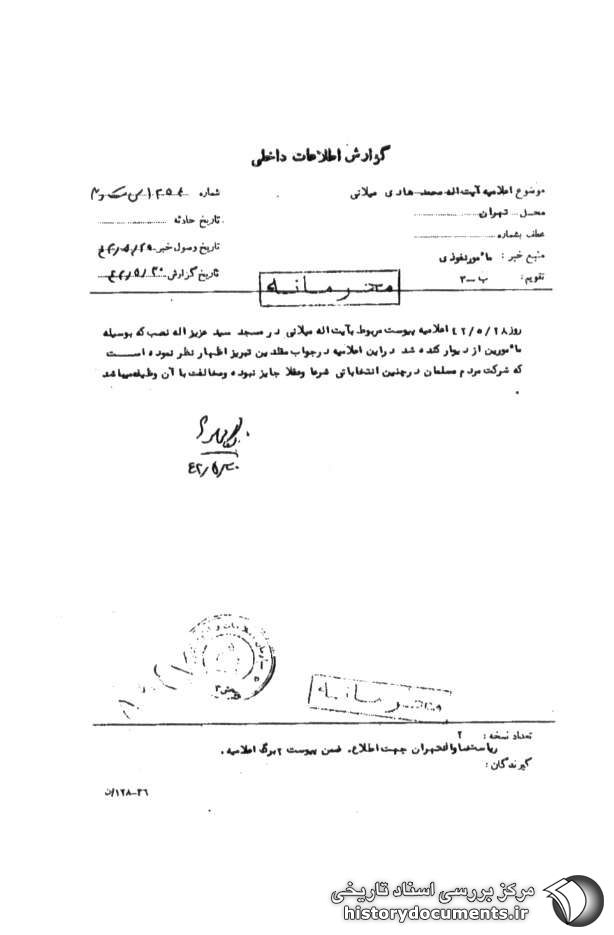 گزارش اطلاعات داخلی
موضوع اعلامیه آیت‌اله محمد هادی میلانی
شماره
محل تهران
تاریخ حادثه
عطف بشماره
تاریخ وصول خبر
منبع خبر : مأمور نفوذی
تاریخ گزارش ۴۲/۵/۳۰
تقویم : ب-۳
محرمانه
روز ۴۲/۵/۲۸ اعلامیه پیوست مربوط بآیت‌اله میلانی در مسجد سید عزیز اله نصب که بوسیله
مأمورین از دیوار کنده شد در این اعلامیه در جواب مقلدین تبریز اظهار نظر نموده است
که شرکت مردم مسلمان در چنین انتخاباتی شرعا وعقلا جایز نبوده ومخالفت با آن وظیفه میباشد
.
۴۲/۵/۳۰
محرمانه
تعداد نسخه : ۲
ریاست ساواک تهران جهت اطلاع. ضمن پیوست ۲ برگ اعلامیه .
گیرندگان :
۱۲۸-۳۶/ن
مرکز بررسی اسناد تاریخی
historydocuments.ir